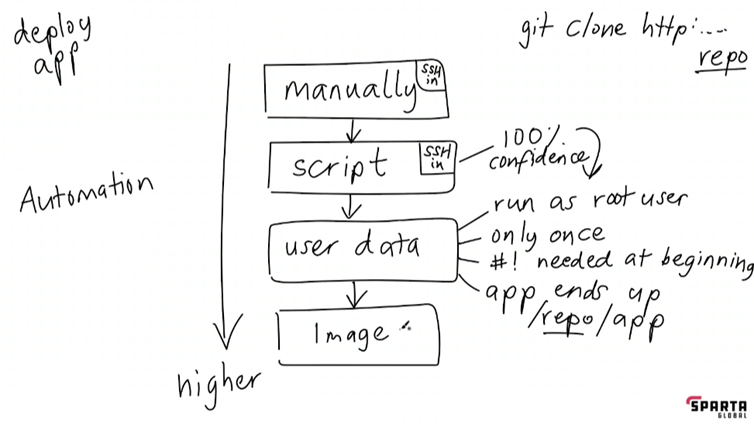 deploy
app
git clone http:....
repo
manually
SSH
in
script
SSH
in
100%
confidence
Automation
user data
run as root user
only once
#! needed at beginning
app ends up
/repo/app
Image
higher
SPARTA
GLOBAL